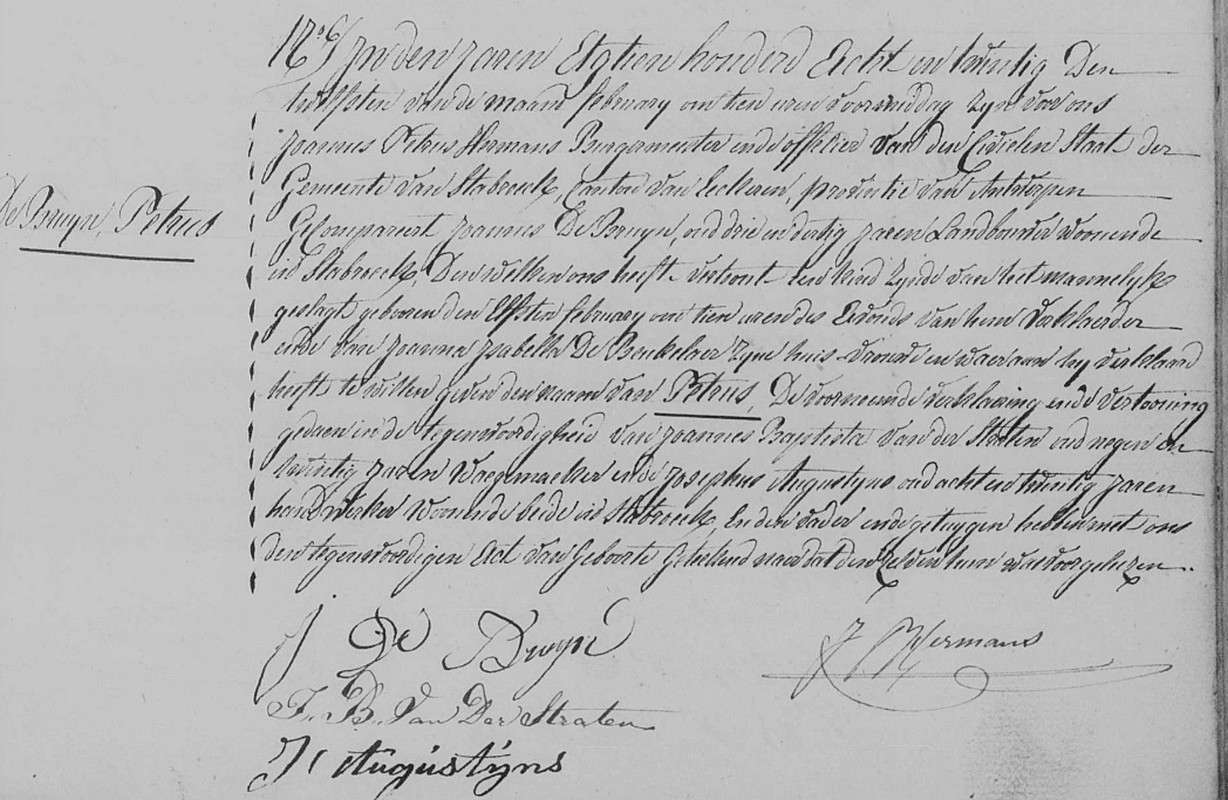 N.° 6 In den jaren Agtien honderd Acht en twintig Den
twelfsten van de maand february om tien uren voormiddag zyn voor ons
Joannes Petrus Hermans Burgermeester ende officier van den Civielen Staat der
Gemeente van Stabroeck, Canton van Eeckeren, provintie van Antwerpen
De Bruyn, Petrus
Gecompareert Joannes De Bruyn, oud drie en dertig jaren Landbouwer woonende
in Stabroeck, Den welken ons heeft vertoont een kind zynde van het mannelyk
geslagt geboren den Elfsten february om tien uren des Avonds van hem Verklaerder
ende van Joanna Isabella De Beukelaer zyne huis-vrouw en waer aan hy verklaard
heeft te willen geven den naam van Petrus, De voornoemde verklaering ende vertooning
gedaen in de tegenwoordigheid van Joannes Baptista van der Straten oud negen en
twintig jaren Waegemaeker ende Josephus Augustyns oud acht en twintig jaren
handwerker Woonende beide in Stabroeck, En den vader ende getuygen hebben met ons
den tegenwoordigen Act van Geboorte Geteekend naer dat den zelven hun was voorgelezen.
J De Bruyn
J. P. Hermans
J. B. Van Der Straten
J Augustÿns